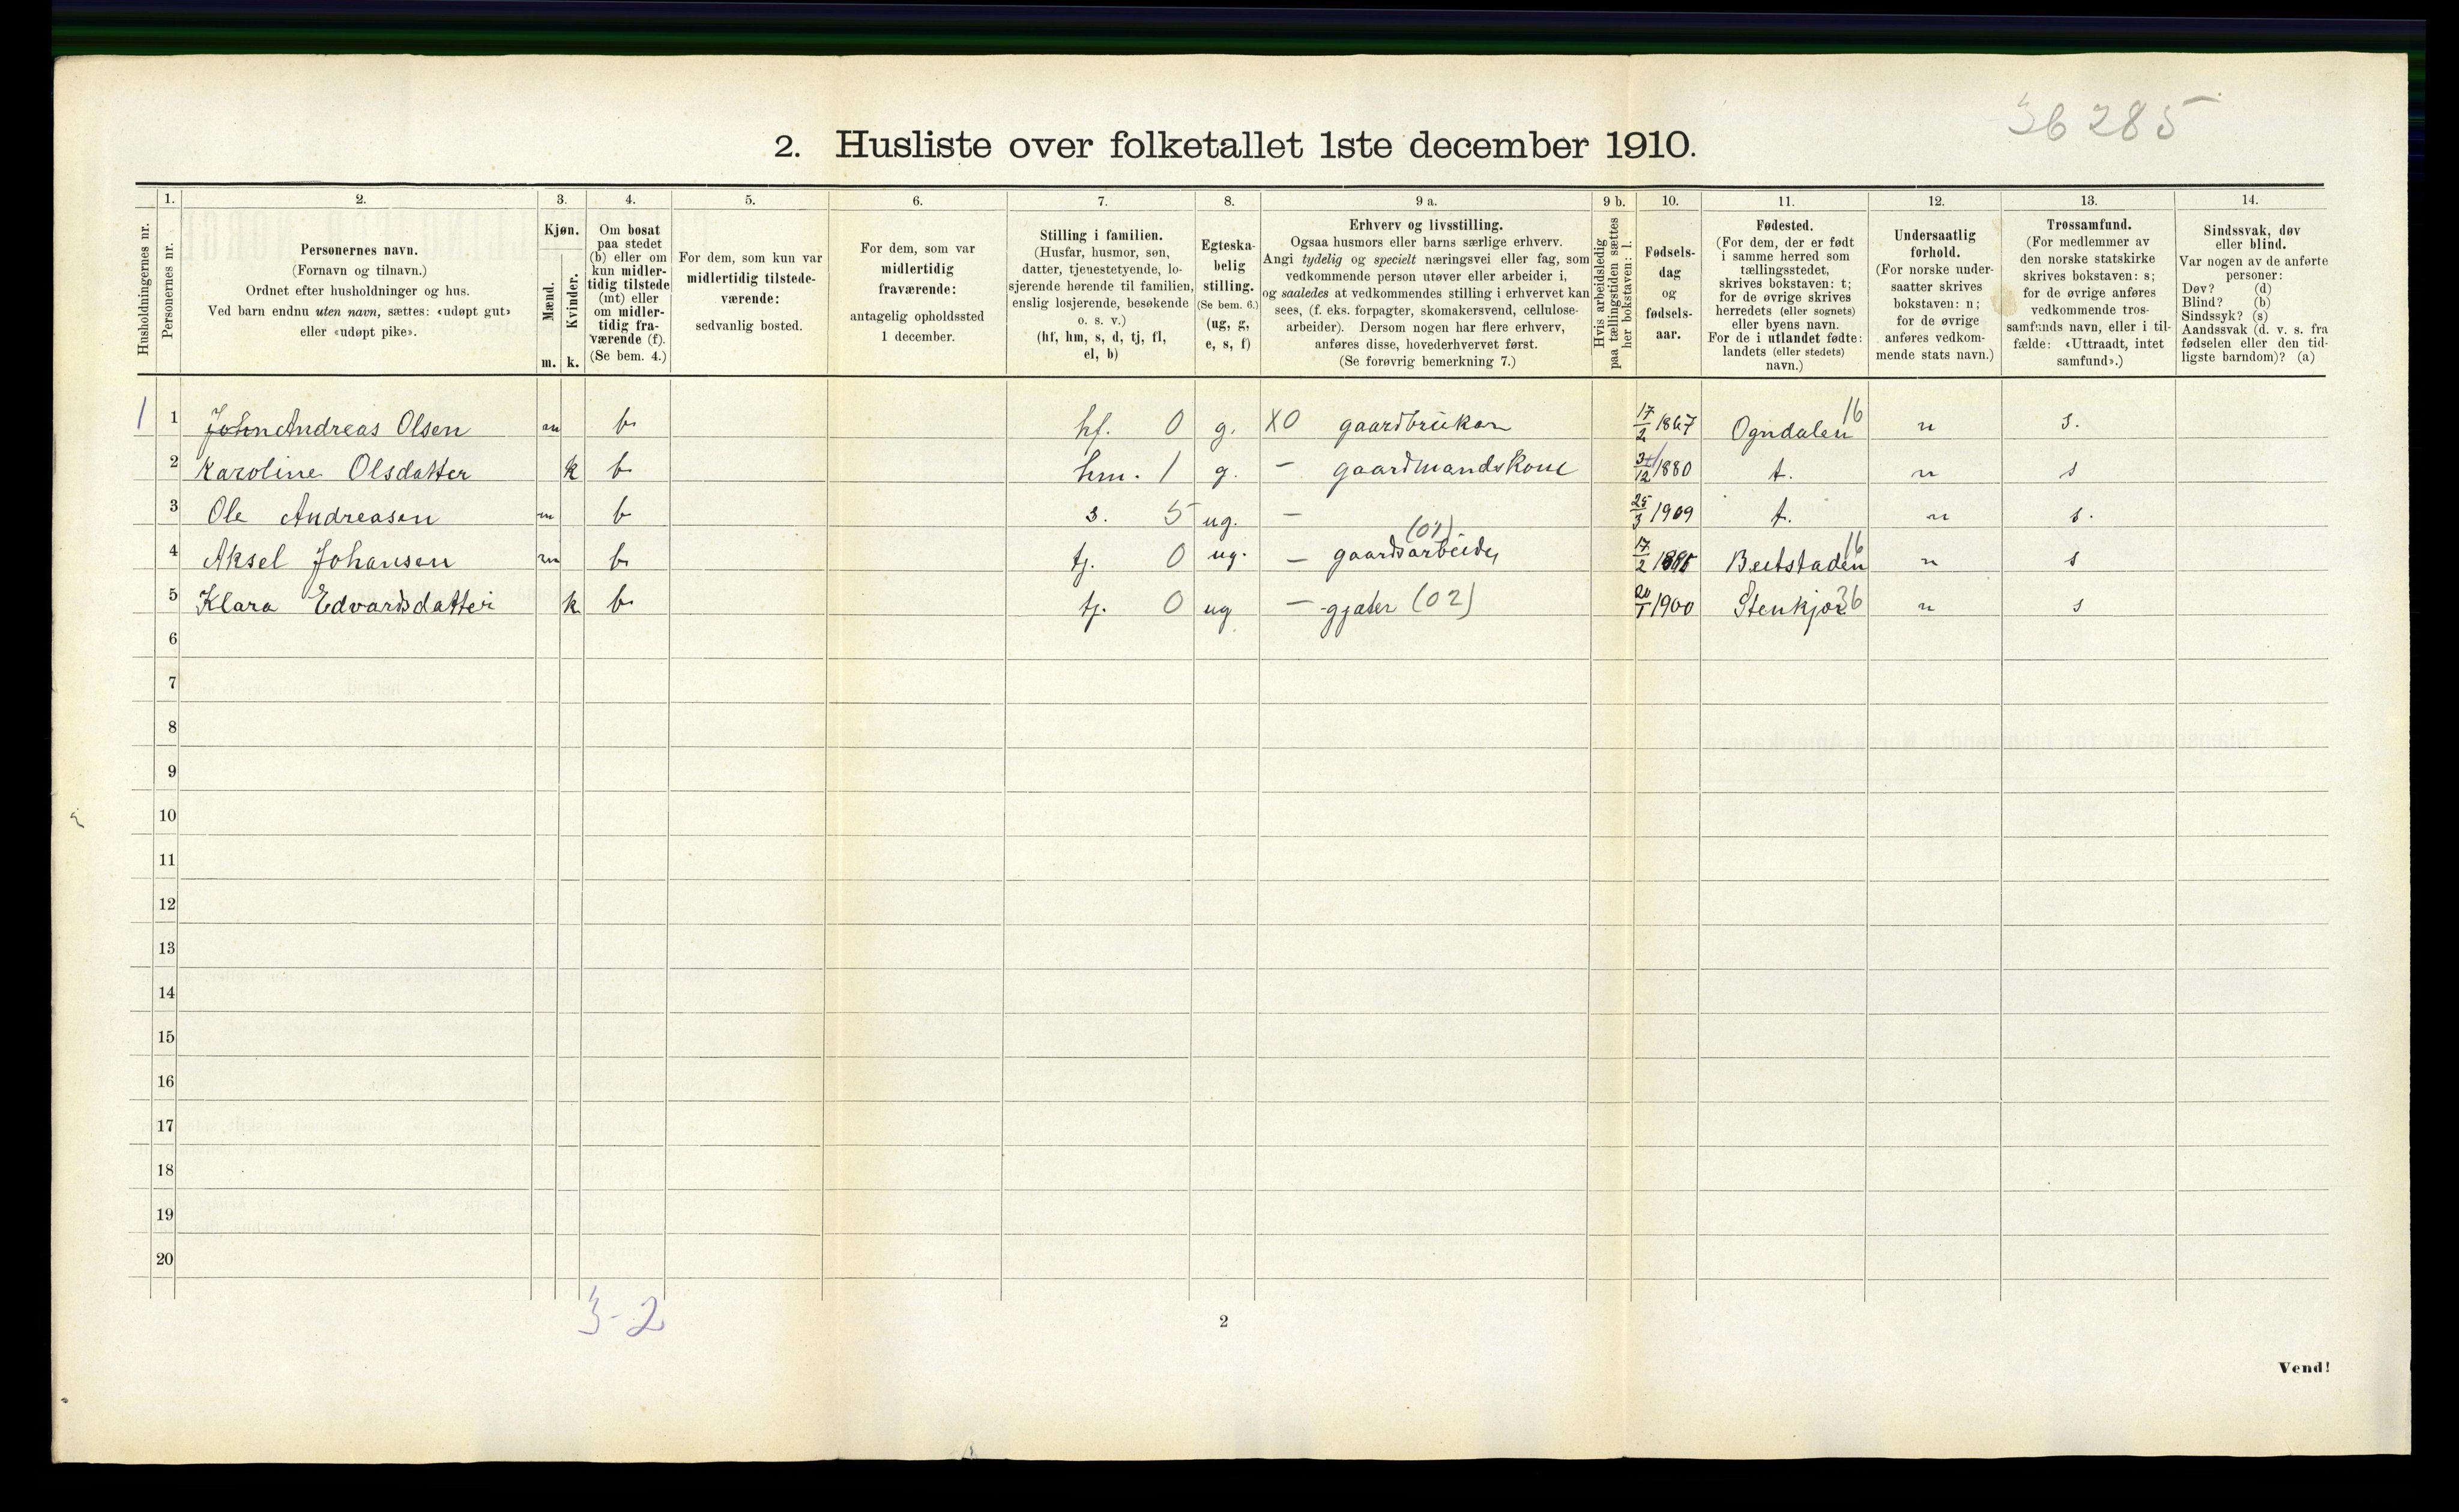 36 285
2. Husliste over folketallet 1ste december 1910.
Husholdningernes nr.
1.
Personernes nr.
2.
Personernes navn.
(Fornavn og tilnavn.)
Ordnet efter husholdninger og hus.
Ved barn endnu uten navn, sættes: «udøpt gut»
eller «udøpt pike».
3.
Kjøn.
Mænd.
m.
Kvinder.
k.
4.
Om bosat
paa stedet
(b) eller om
kun midler-
tidig tilstede
(mt) eller
om midler-
tidig fra-
værende (f).
(Se bem. 4.)
5.
For dem, som kun var
midlertidig tilstede-
værende:
sedvanlig bosted.
6.
For dem, som var
midlertidig
fraværende:
antagelig opholdssted
1 december.
7.
Stilling i familien.
(Husfar, husmor, søn,
datter, tjenestetyende, lo-
sjerende hørende til familien,
enslig losjerende, besøkende
o. s. v.)
(hf, hm, s, d, tj, fl,
el, b)
8.
Egteska-
belig
stilling.
(Se bem. 6.)
(ug, g,
e, s, f)
9 a.
Erhverv og livsstilling.
Ogsaa husmors eller barns særlige erhverv.
Angi tydelig og specielt næringsvei eller fag, som
vedkommende person utøver eller arbeider i,
og saaledes at vedkommendes stilling i erhvervet kan
sees, (f. eks. forpagter, skomakersvend, cellulose-
arbeider). Dersom nogen har flere erhverv,
anføres disse, hovederhvervet først.
(Se forøvrig bemerkning 7.)
9 b.
Hvis arbeidsledig
paa tællingstiden sættes
her bokstaven: l.
10.
Fødsels-
dag
og
fødsels-
aar.
11.
Fødested.
(For dem, der er født
i samme herred som
tællingsstedet,
skrives bokstaven: t;
for de øvrige skrives
herredets (eller sognets)
eller byens navn.
For de i utlandet fødte:
landets (eller stedets)
navn.)
12.
Undersaatlig
forhold.
(For norske under-
saatter skrives
bokstaven: n;
for de øvrige
anføres vedkom-
mende stats navn.)
13.
Trossamfund.
(For medlemmer av
den norske statskirke
skrives bokstaven: s;
for de øvrige anføres
vedkommende tros-
samfunds navn, eller i til-
fælde: «Uttraadt, intet
samfund».)
14.
Sindssvak, døv
eller blind.
Var nogen av de anførte
personer:
Døv? (d)
Blind? (b)
Sindssyk? (s)
Aandssvak (d. v. s. fra
fødselen eller den tid-
ligste barndom)? (a)
1 1 John Andreas Olsen m b. hf. 0 g. X0 gaardbruker 17/2 1867 Ogndalen 16 n s.
2 Karoline Olsdatter k b hm. 1 g. - gaardmandskone 31/12 1880 t. n s
3 Ole Andreasen m b s. 5 ug. - 25/3 1909 t. n s.
4 Aksel Johansen m b tj. 0 ug. - gaardsarbeider 17/2 Beitstaden 16 n s
5 Klara Edvardsdatter k b tj. 0 ug - gjæter (02) 20/1 1900 Stenkjær 36 n s
6
7
8
9
10
11
12
13
14
15
16
17
18
19
20
3-2
2
Vend!